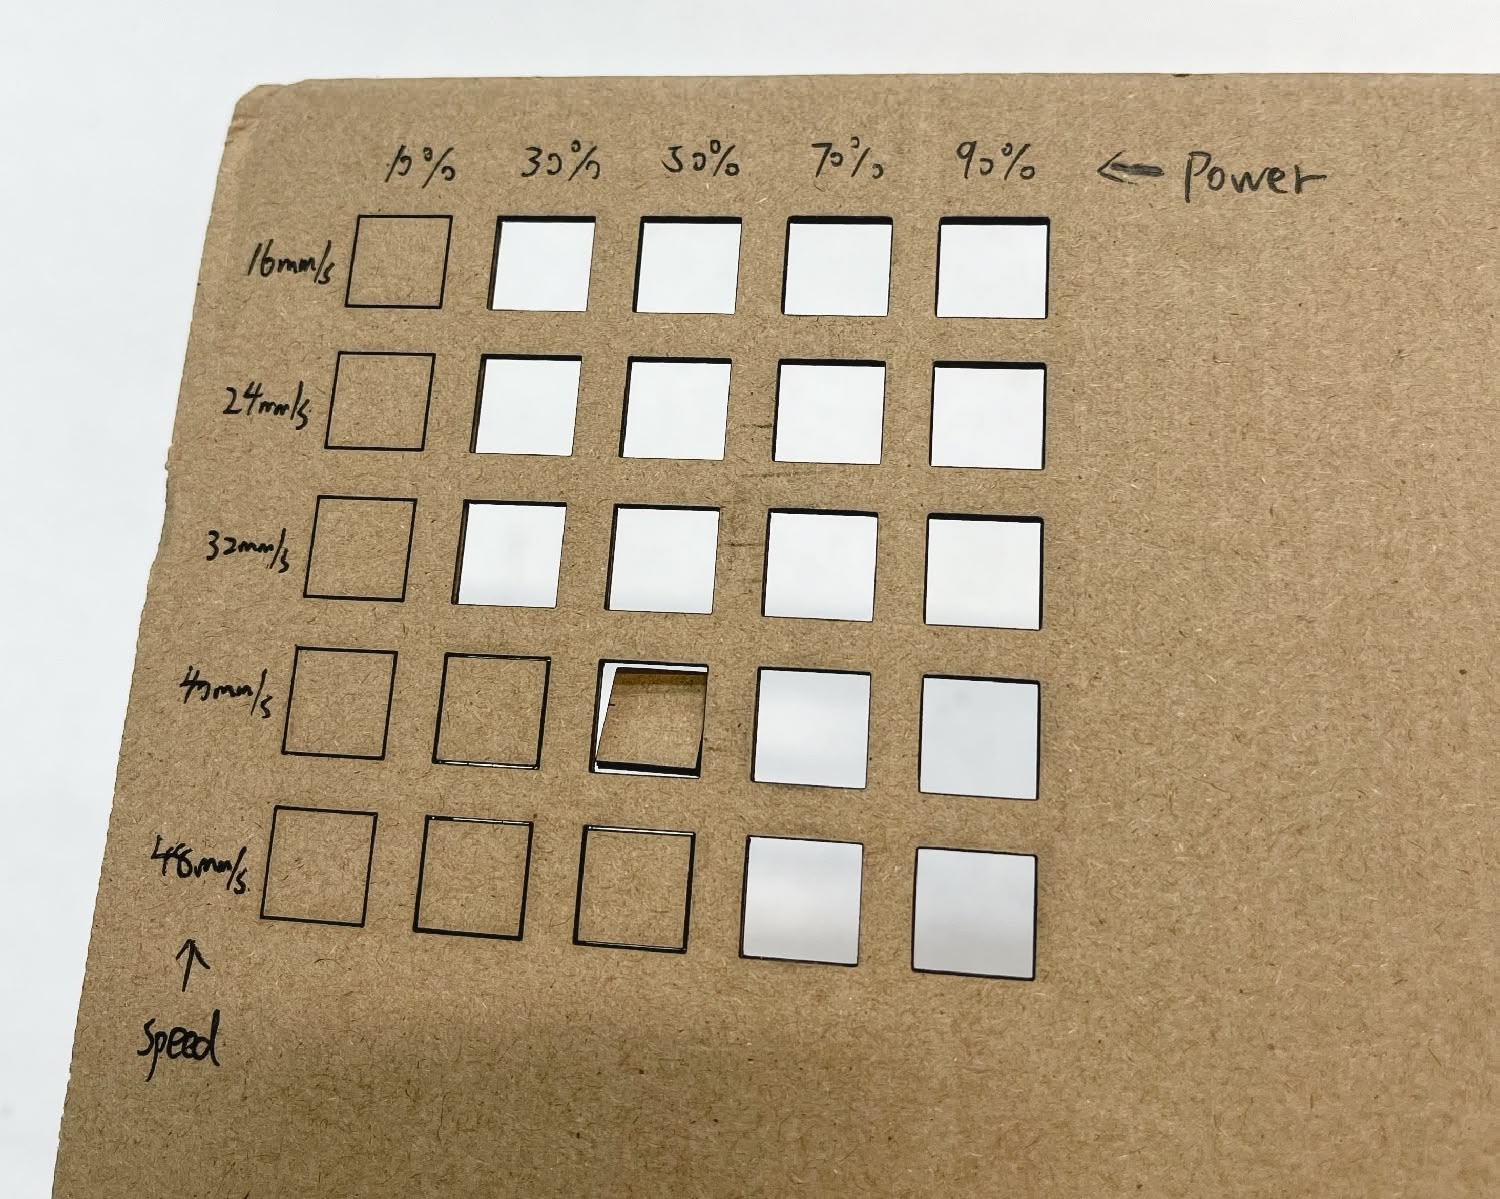 10% 30% 50% 70% 90% ← Power
16mm/s
24mm/s
32mm/s
40mm/s
48mm/s
↑
Speed